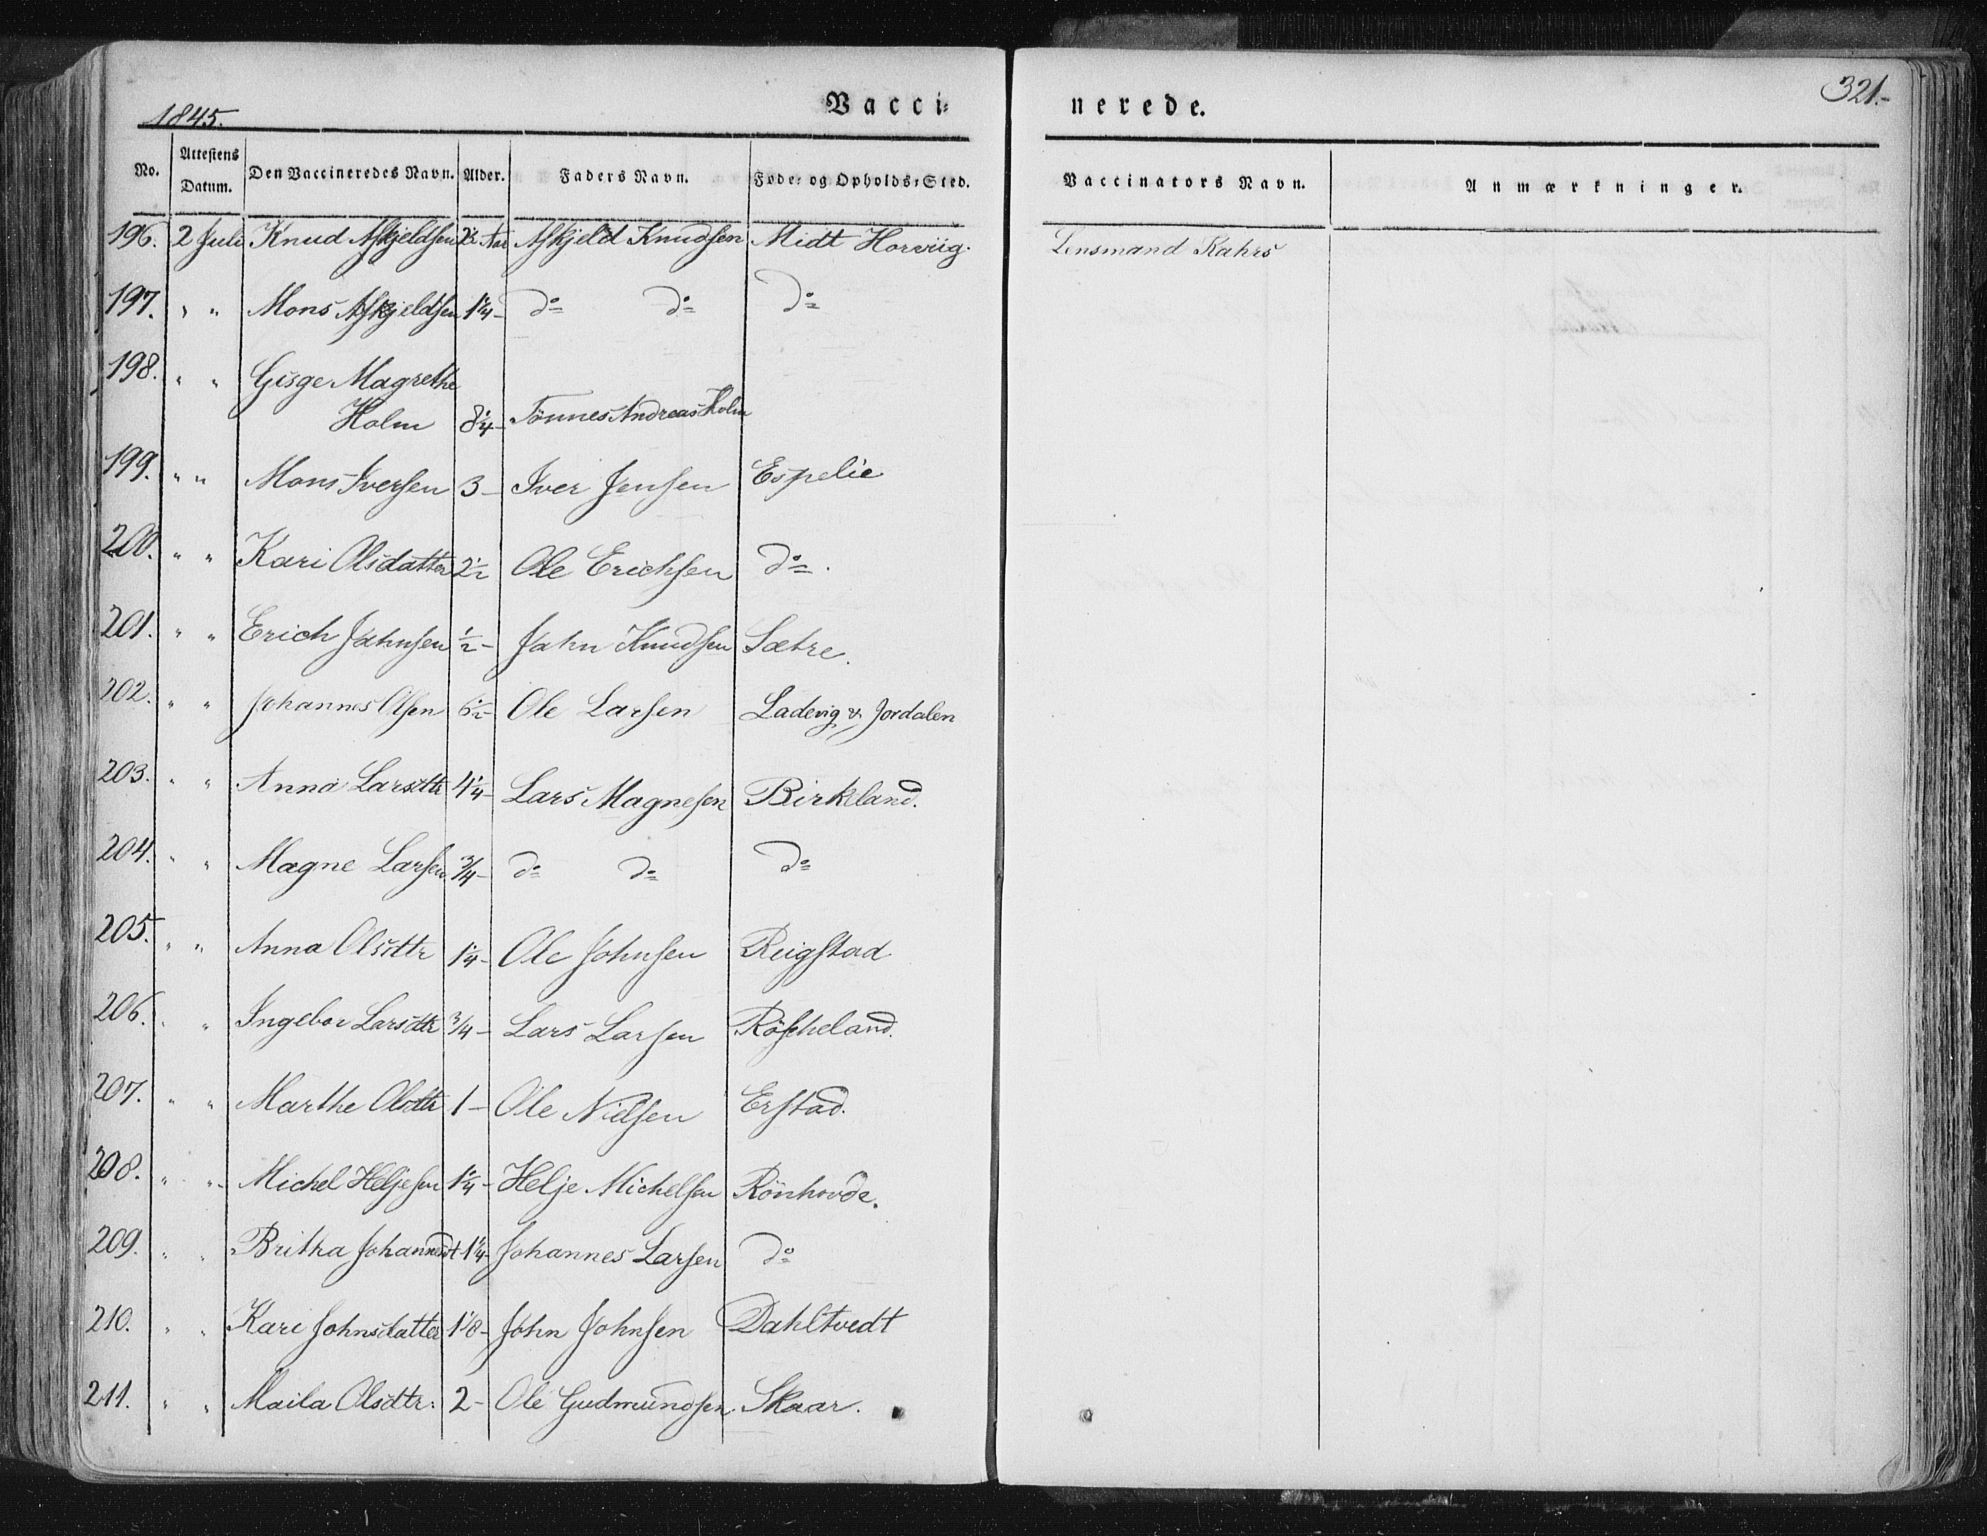 1845.
Vacci-
nerede.
321.-
No. Attestens Datum. Den Vaccineredes Navn. Alder. Faders Navn. Føde- og Opholds-Sted. Vaccinators Navn. Anmærkninger.
196. 2 Juli Knud Askjeldsen 2½ Aar Askjeld Knudsen Midt Horviig. Lensmand Kahrs
197. " " Mons Askjeldsen 1¼ - do do do
198. " " Gisge Magrethe
Holm 8¼ - Tönnes Andreas Holm
199. " " Mons Iversen 3 - Iver Jensen Espelie
200. " " Kari Olsdatter 2½ Ole Erichsen do.
201. " " Erich Jahnsen ½ - Jahn Knudsen Sætre.
202. " " Johannes Olsen 6½ - Ole Larsen Ladevig & Jordalen
203. " " Anna Larsdtr 4¼ - Lars Magnesen Birkeland.
204. " " Magne Larsen ¾ - do do do
205. " " Anna Olsdtr 1¼ - Ole Johnsen Reigstad
206. " " Ingebor Larsdtr ¾ - Lars Larsen Röscheland.
207. " " Marthe Olsdtr 1 - Ole Nielsen Erstad.
208. " " Michel Heljesen 1¼ - Helje Michelsen Rönhovde.
209. " " Britha Johannesdt 1¼ - Johannes Larsen do
210. " " Kari Johnsdatter 1⅛ - John Johnsen Dahltvedt
211. " " Maila Olsdtr. 2 - Ole Gudmundsen Skaar.